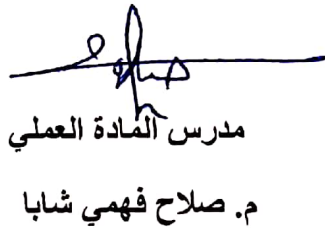 مدرس المادة العملي
م. صلاح فهمي شابا